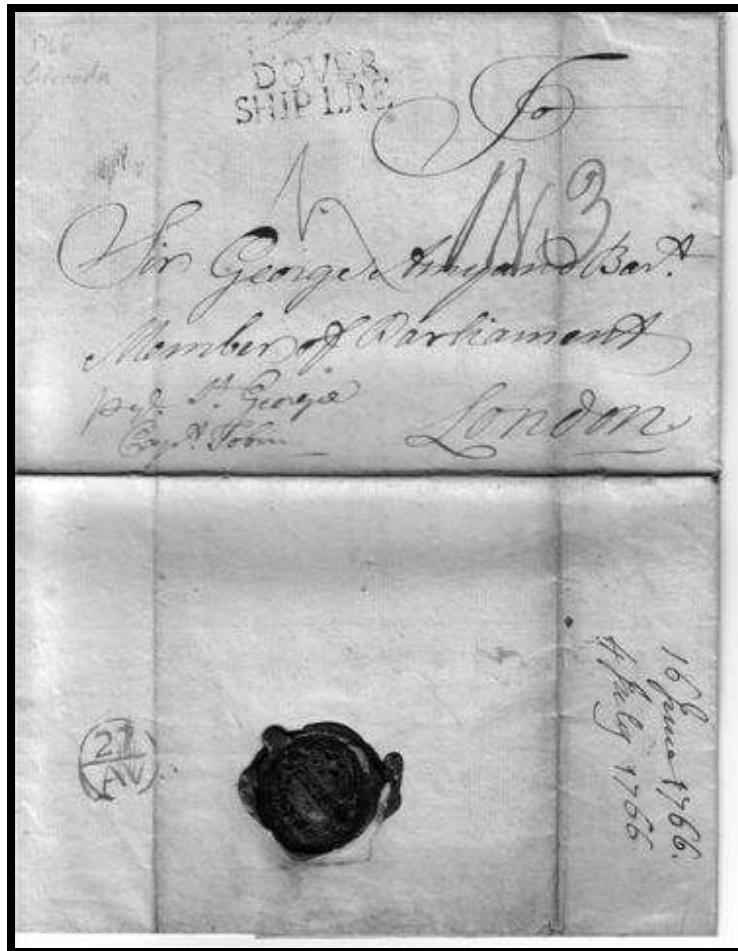 1766
Grenada
DOVER
SHIP LRE
To
IN 3
Sir George Amyand Bar.t
Member of Parliament
p St. George
Capt. Tobin
London
16 June 1766.
4 July 1766
27
AV